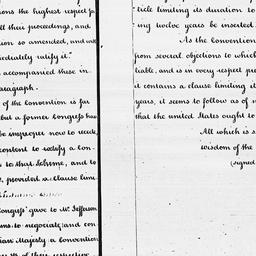 ons the highest respect fo
ll their proceedings, and
ion so amended, and will
mediately ratify it."
accompanied these in
aragraph.
of the Convention is far
but a former Congress have
be improper now to recede,
content to ratify a Con-
to that Scheme, and to
, provided a clause limi-
Congress gave to Mr. Jefferson
ns to negociate and con-
ian Majesty a Convention
ticle limiting its duration to
ing twelve years be inserted.
As the Convention
from several objections to which
liable, and is in every respect pre
it contains a clause limiting it
years, it seems to follow as of
that the united States ought to
All which is s
wisdom of the
(signed